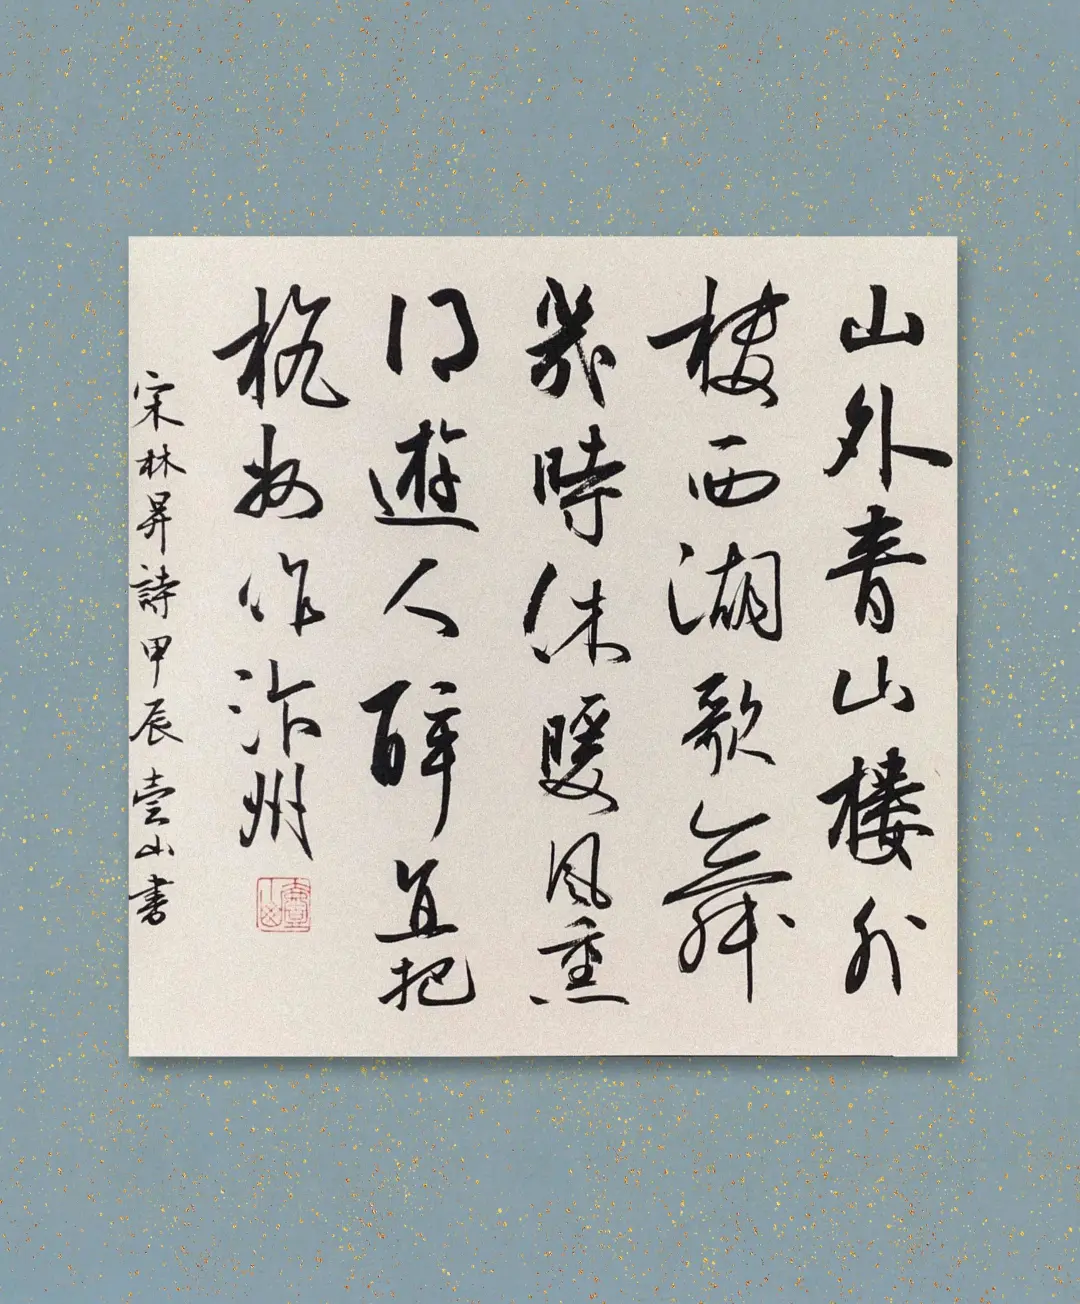 山外青山樓外
樓西湖歌舞
幾時休暖風熏
得遊人醉直把
杭州作汴州
宋林昇詩甲辰壹山書